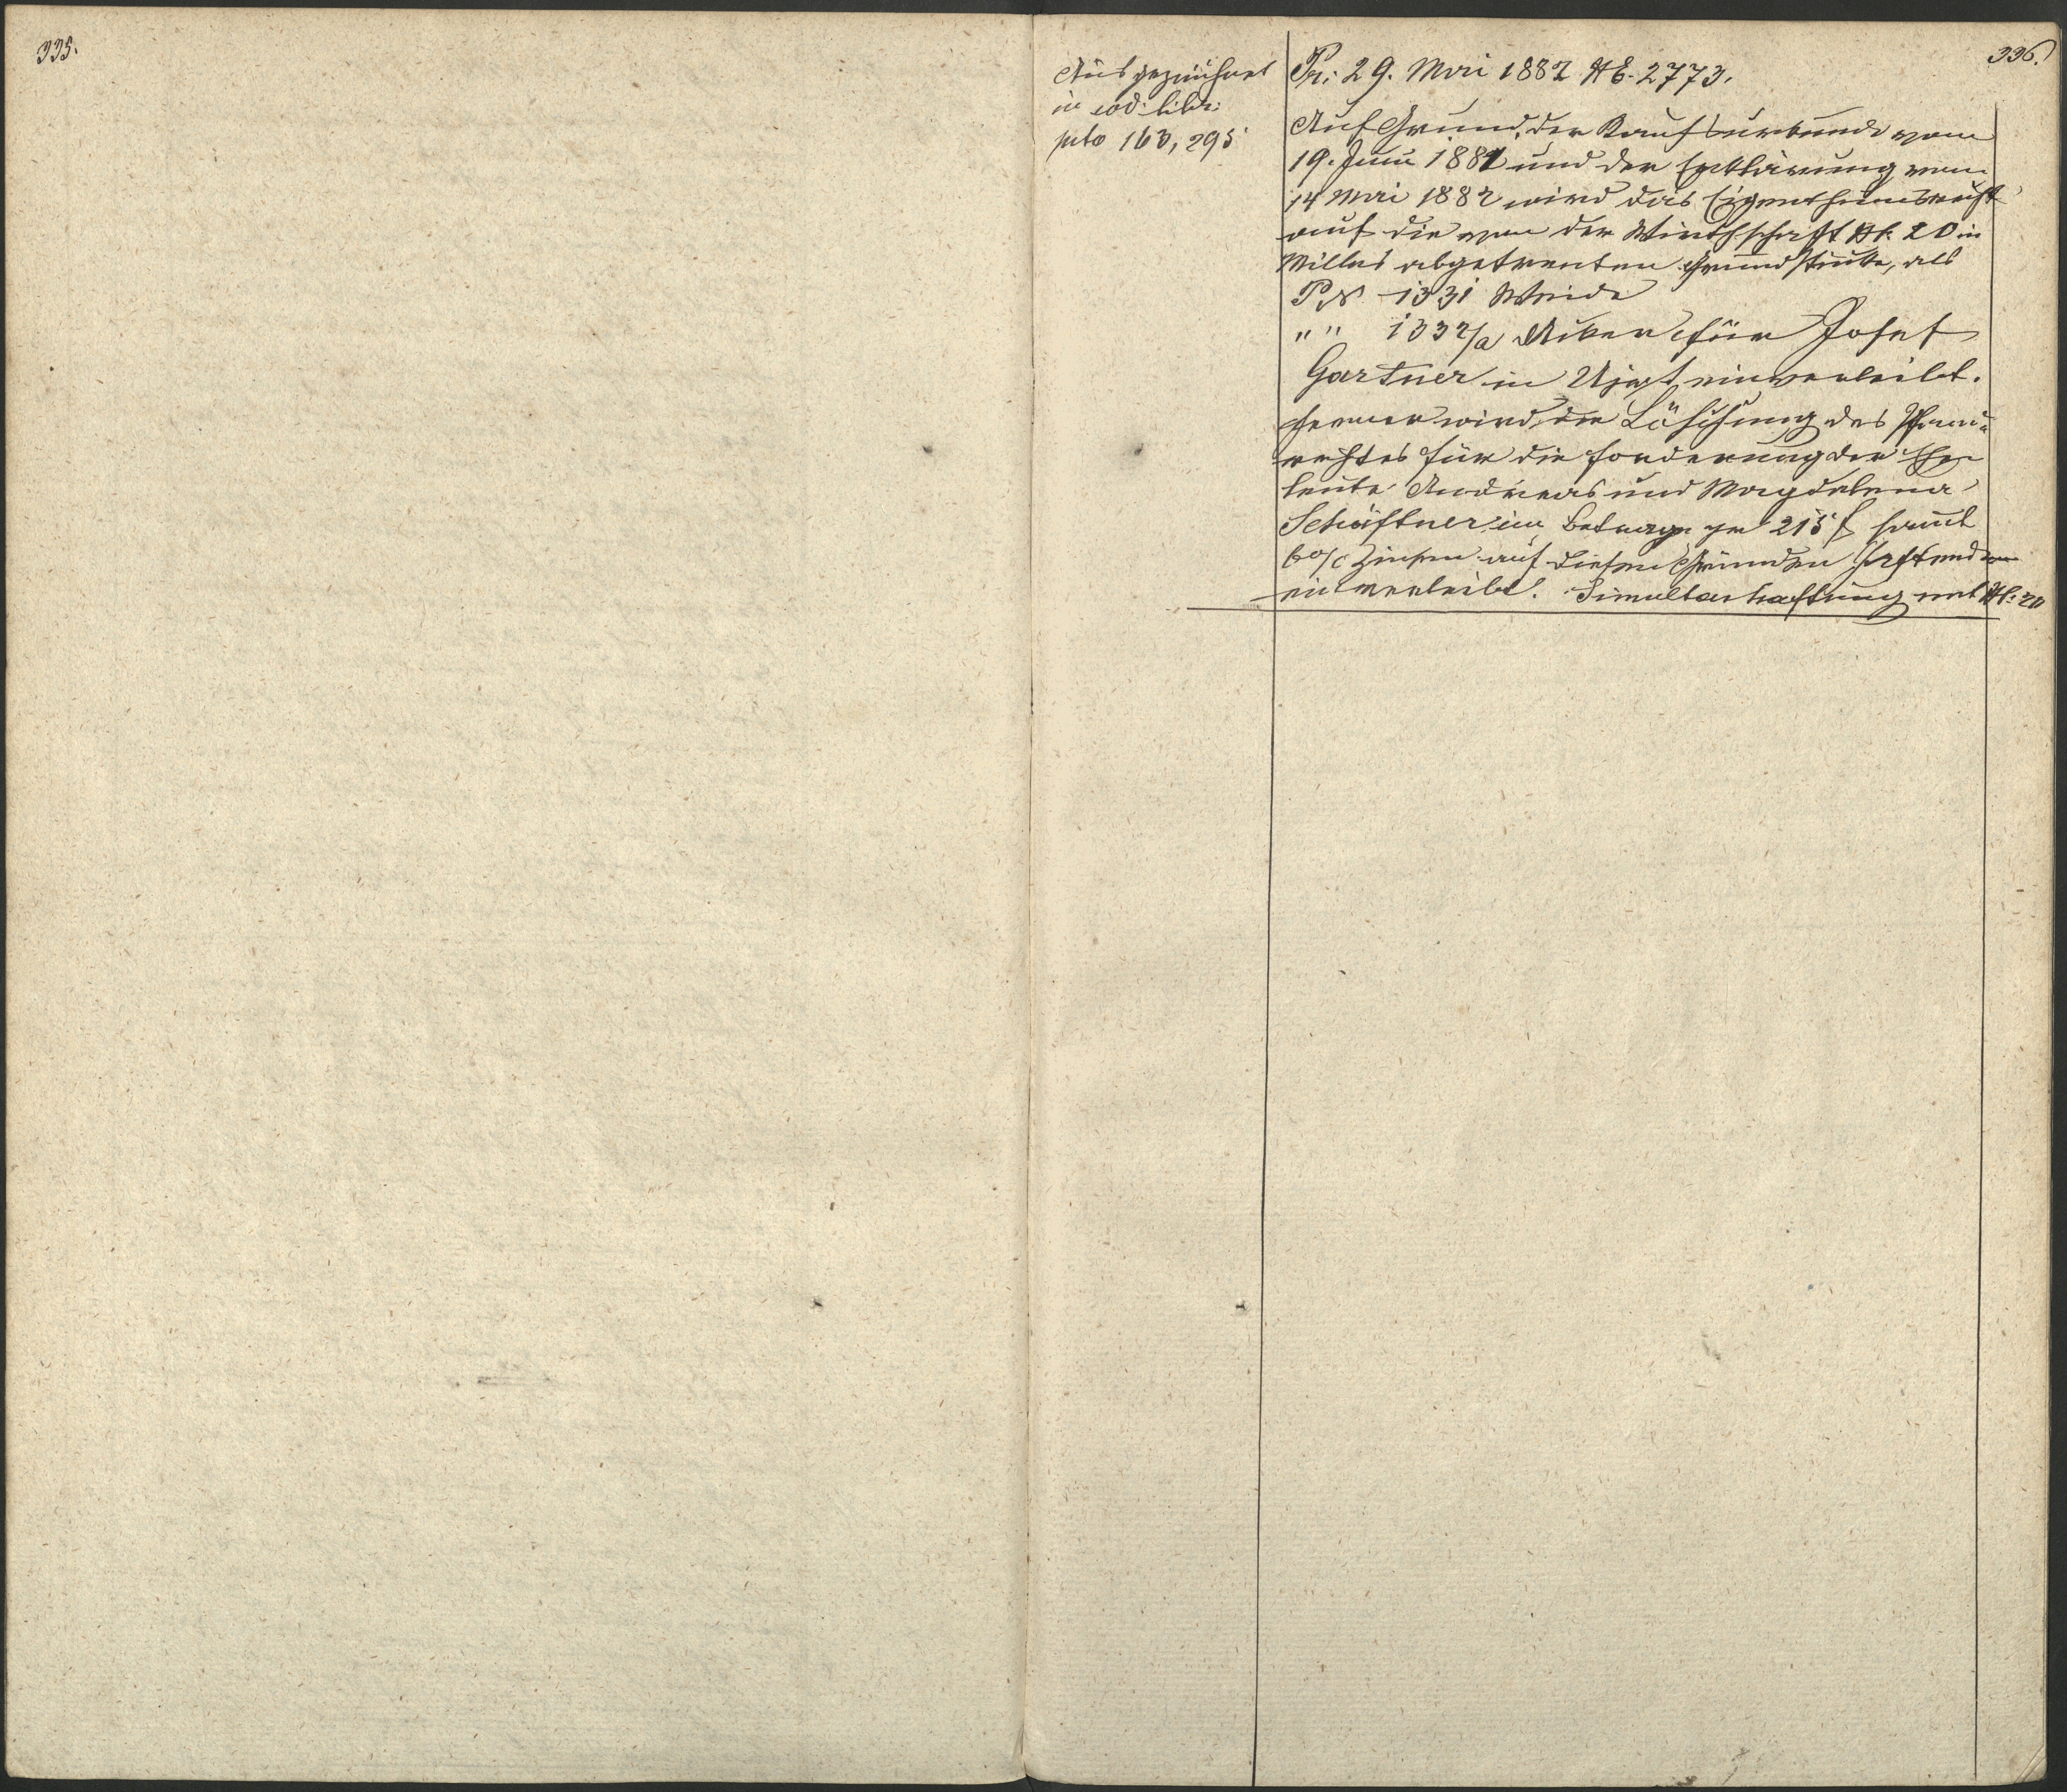 335.
336.
Ausgezeichnet
in eod: libr:
pcto 163, 295
Pr: 29. Mai 1882 NE. 2773.
Auf Grund der Kaufsurkunde vom
19. Juni 1881 und der Erklärung vom
14 Mai 1882 wird das Eigenthumsrecht
auf die von der Wirthschaft N: 20 in
Millus abgetrenten Grundstücke, als
P.N. 1331 Weide
" " 1332/a Acker für Josef
Gartner in Ujezt einverleibt.
Ferner wird die Löschung des Pfand-
rechtes für die Forderung der Ehe-
leute Andreas und Magdalena
Schäftner im Betrage per 215 f sammt
6 o/c Zinsen auf diesen Gründen haftend
einverleibt. Simultanhaftung mit N: 20